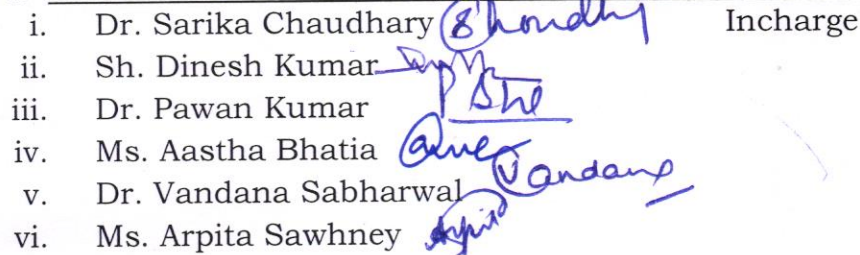 i. Dr. Sarika Chaudhary Incharge
ii. Sh. Dinesh Kumar
iii. Dr. Pawan Kumar
iv. Ms. Aastha Bhatia
v. Dr. Vandana Sabharwal Vandana
vi. Ms. Arpita Sawhney